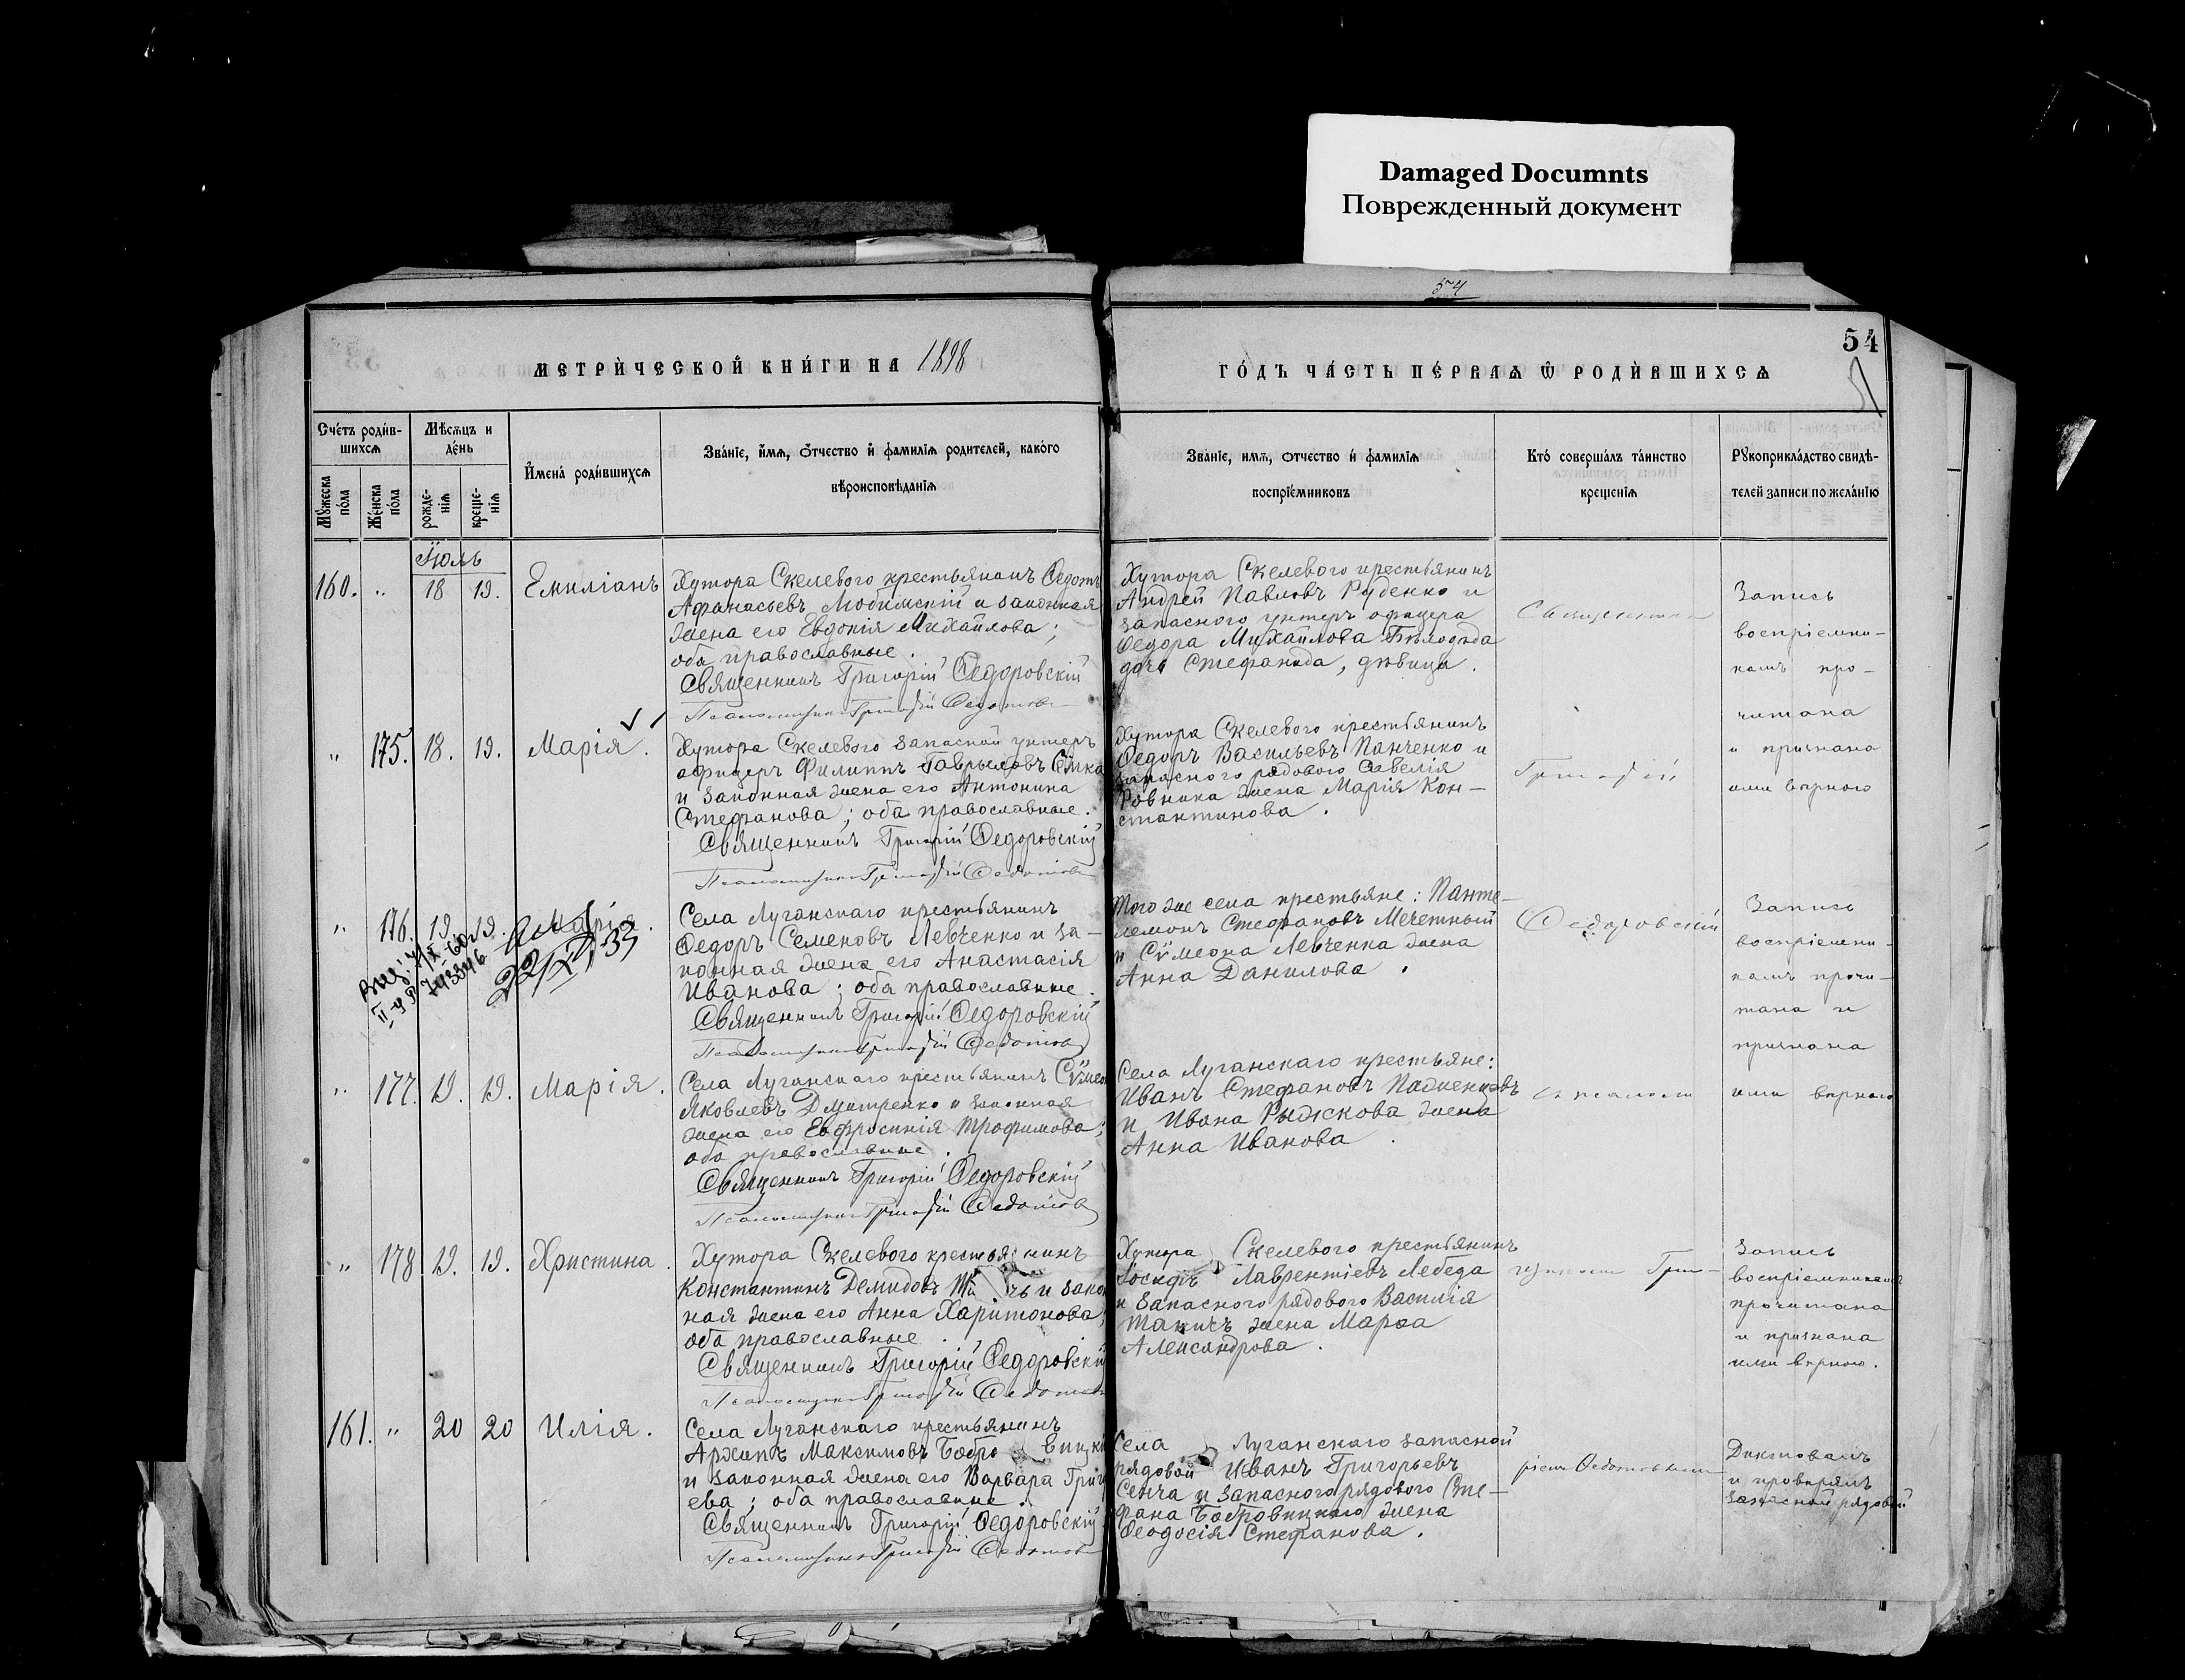 Damaged Documnts
Поврежденный документ
54
54
МЕТРИ́ЧЕСКОЙ КНИ́ГИ НА 1898
ГО́ДЪ ЧА́СТЬ ПЕ́РВАѦ Ѿ РОДИ́ВШИХСѦ
Сче́тъ роди́в-
шихсѧ
Мꙋжеска по́ла
Же́нска по́ла
Мѣ́сѧцъ и
де́нь
рожде-
нїѧ
креще-
нїѧ
И҆мена̀ роди́вшихсѧ
Зва́нїе, и҆мѧ, о҆́тчество и҆ фами́лїѧ роди́телей, како́го
вѣроисповѣ́данїѧ
Зва́нїе, имѧ, о́тчество и҆ фами́лїѧ
воспрїе́мниковъ
Кто̀ соверша́лъ та́инство
креще́нїѧ
Рꙋкоприкла́дство свидѣ́-
телей записи по жела́нїю
Іюль
160. " 18 19. Емиліанъ
Хутора Скелевого крестьянинъ Ѳедотъ
Афанасьевъ Любимскій и законная
жена его Евдокія Михайлова;
оба православные.
Священникъ Григорій Ѳедоровскій
Псаломщикъ Григорій Ѳедотовъ
Хутора Скелевого крестьянинъ
Андрей Павловъ Руденко и
запаснаго унтеръ офицера
Ѳедора Михайлова Бѣлодѣда
дочь Стефанида, дѣвица.
Священникъ
Запись
воспріемни-
камъ про-
читана
и признана
ими вѣрною
" 175. 18. 19. Марія.
Хутора Скелевого запасной унтеръ
офицеръ Филиппъ Гаврыловъ
и законная жена его Антонина
Стефанова; оба православные.
Священникъ Григорій Ѳедоровскій
Псаломщикъ Григорій Ѳедотовъ
Хутора Скелевого крестьянинъ
Ѳедоръ Васильевъ Панченко и
запасного рядового Савелія
Ровника жена Марія Кон-
стантинова.
Григорій
" 176. 19. 19. Марія.
743846
22/XI 33
Села Луганскаго крестьянинъ
Ѳедоръ Семеновъ Левченко и за-
конная жена его Анастасія
Иванова; оба православные.
Священникъ Григорій Ѳедоровскій
Псаломщикъ Григорій Ѳедотовъ
Того же села крестьяне: Панте-
леймонъ Стефановъ Мечетный
и Сѵмеона Левченка жена
Анна Данилова.
Ѳедоровскій
Запись
воспріемни-
камъ прочи-
тана и
признана
ими вѣрною
" 177. 19. 19. Марія.
Села Луганскаго крестьянинъ Сѵмеонъ
Яковлевъ Дмитренко и законная
жена его Евфросинія Трофимова;
оба православные.
Священникъ Григорій Ѳедоровскій
Псаломщикъ Григорій Ѳедотовъ
Села Луганскаго крестьяне:
Иванъ Стефановъ
и Ивана Рыжкова жена
Анна Иванова.
съ псалом
" 178 19. 19. Христина.
Хутора Скелевого крестьянинъ
Константинъ Демидовъ и закон
ная жена его Анна Харитонова;
оба православные.
Священникъ Григорій Ѳедоровскій
Псаломщикъ Григорій Ѳедотовъ
Хутора Скелевого крестьянинъ
Іосифъ Лаврентіевъ Лебеда
и запасного рядового Василія
жена Марѳа
Александрова.
щикомъ Гри-
Запись
воспріемникамъ
прочитана
и признана
ими вѣрною.
161. " 20 20 Илія.
Села Луганскаго крестьянинъ
Архипъ Максимовъ Бобро вицкій
и законная жена его Варвара Григ
ева; оба православные.
Священникъ Григорій Ѳедоровскій
Псаломщикъ Григорій Ѳедотовъ
Села Луганскаго запасной
рядовой Иванъ Григорьевъ
Сенча и запасного рядового Сте-
фана Бобровицкаго жена
Ѳеодосія Стефанова.
ріемъ Ѳедотовымъ
Диктовалъ
и провѣрялъ
запасной рядовой